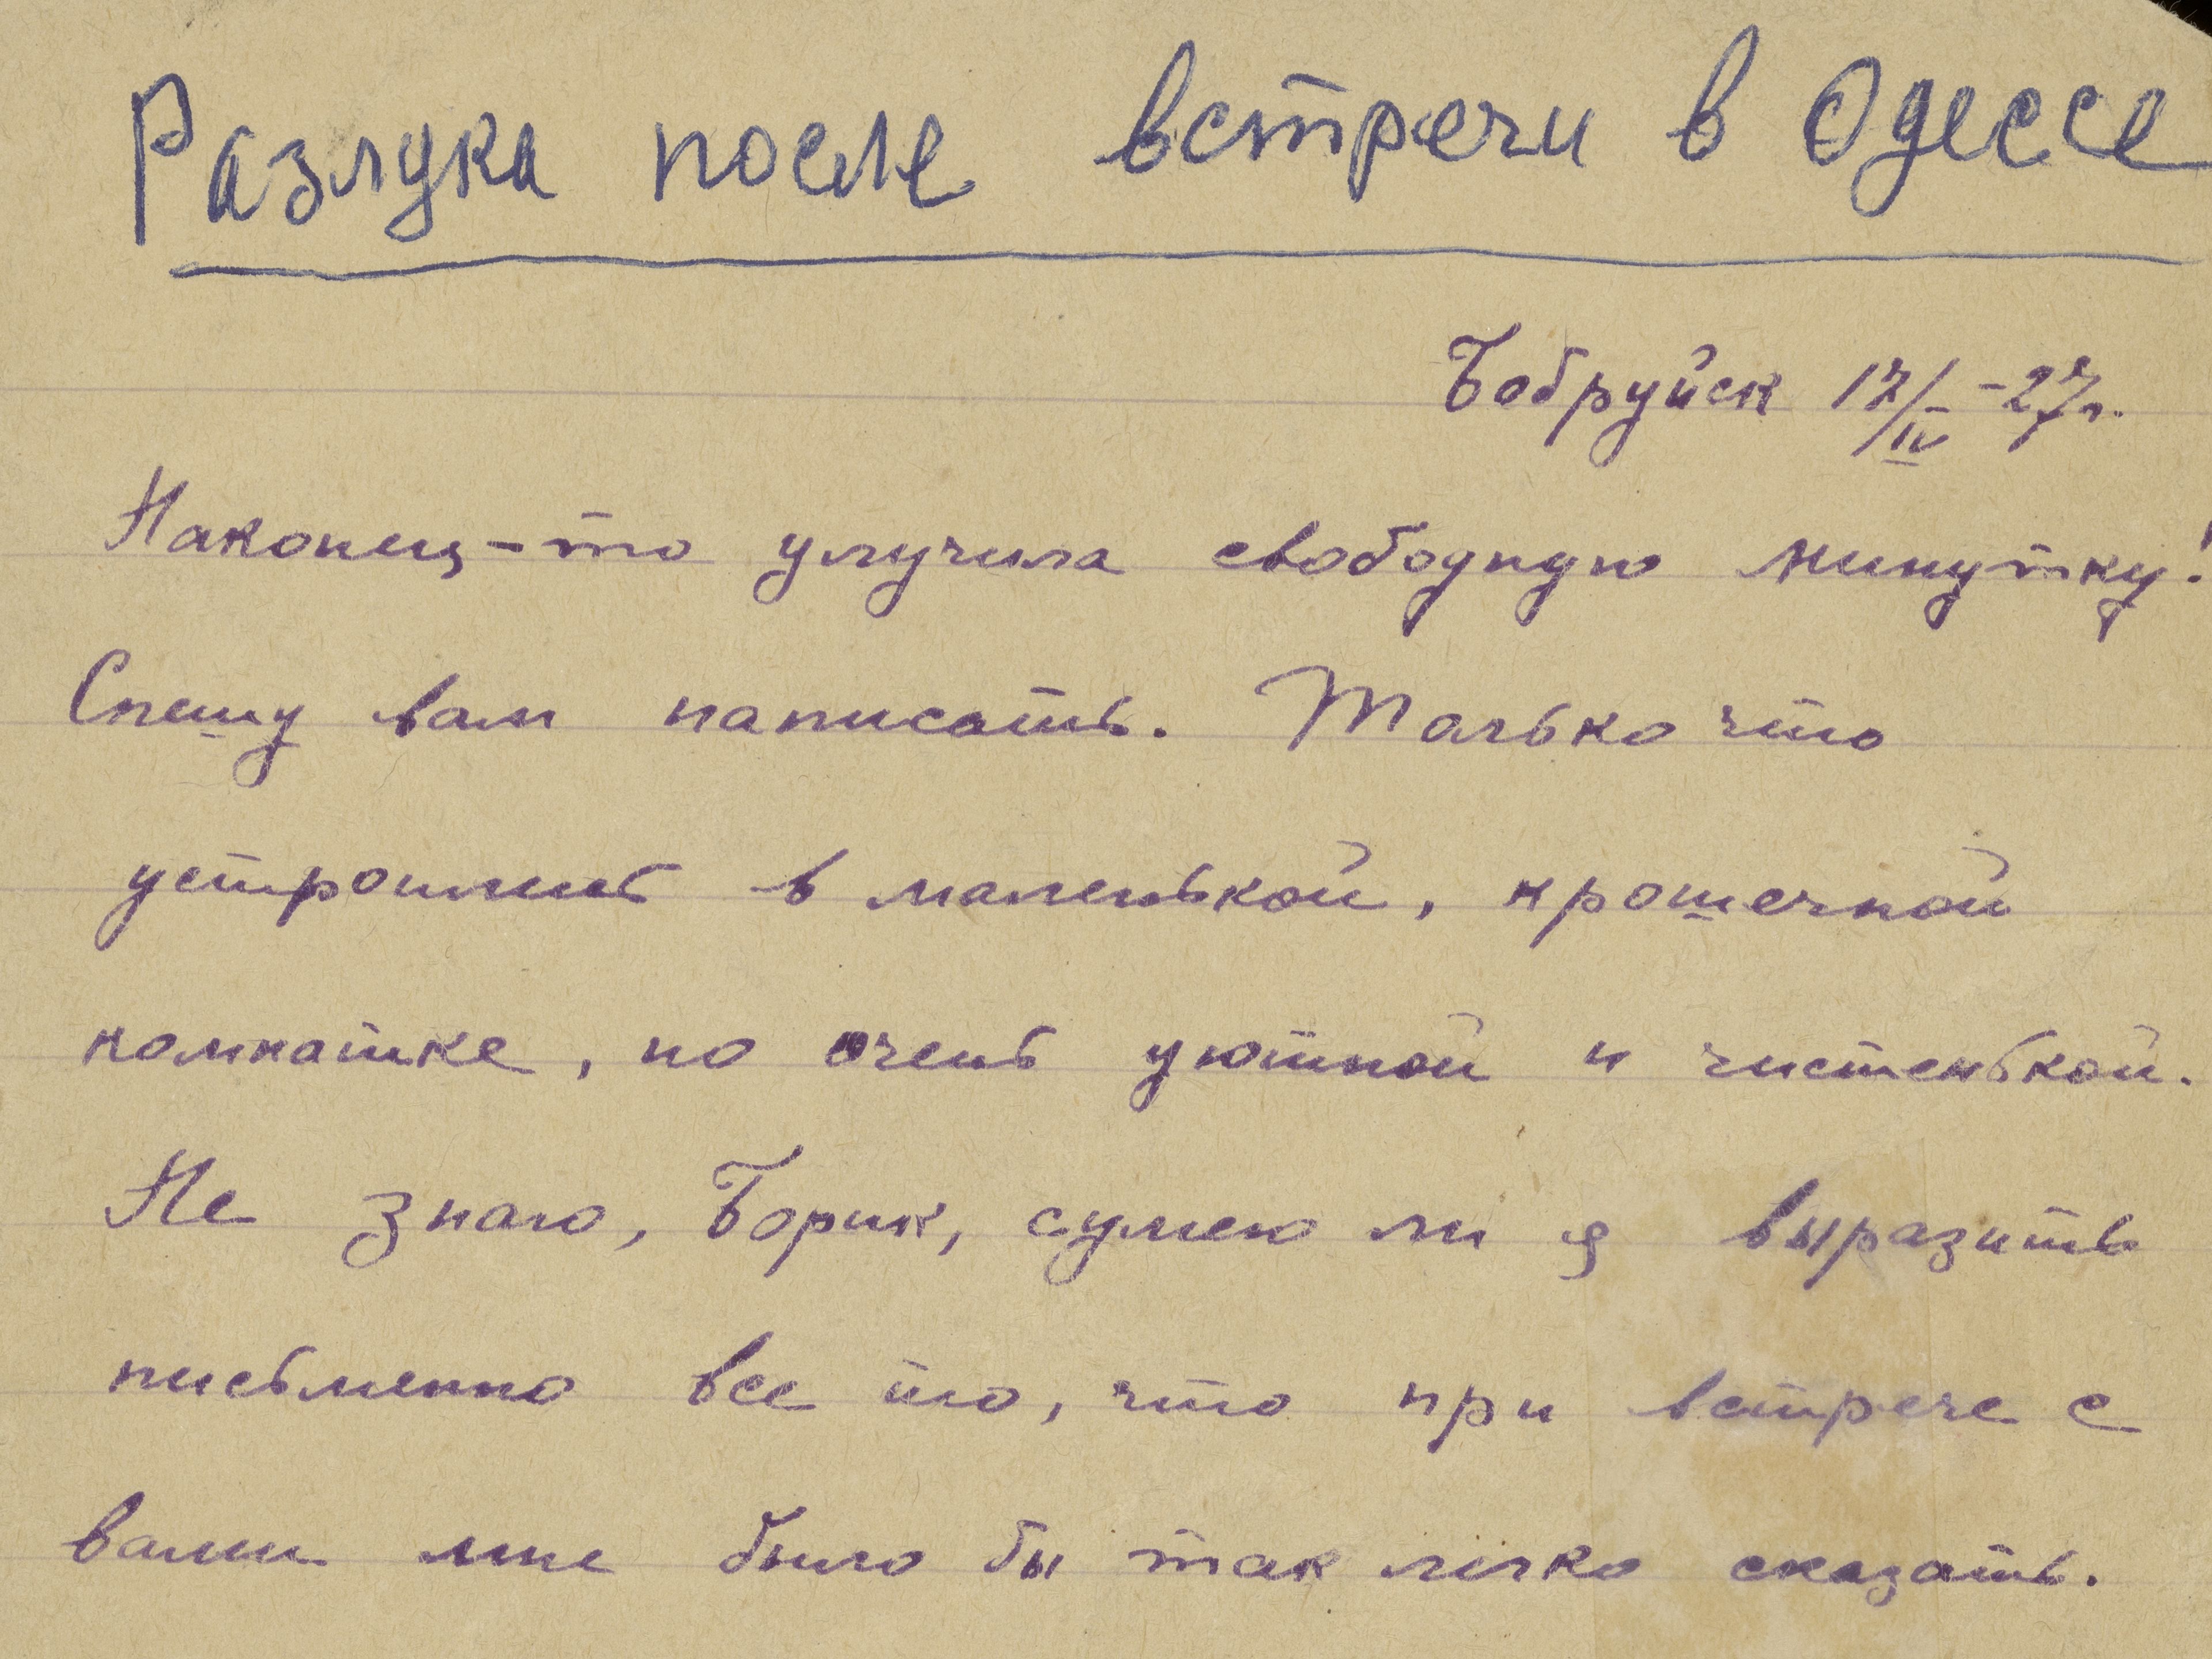 Разлука после встречи в Одессе
Бобруйск 17/IV -27г.
Наконец-то улучила свободную минутку!
Спешу вам написать. Только что
устроились в маленькой, крошечной
комнатке, но очень уютной и чистенькой.
Не знаю, Борик, сумею ли я выразить
письменно все то, что при встрече с
вами мне было бы так легко сказать.